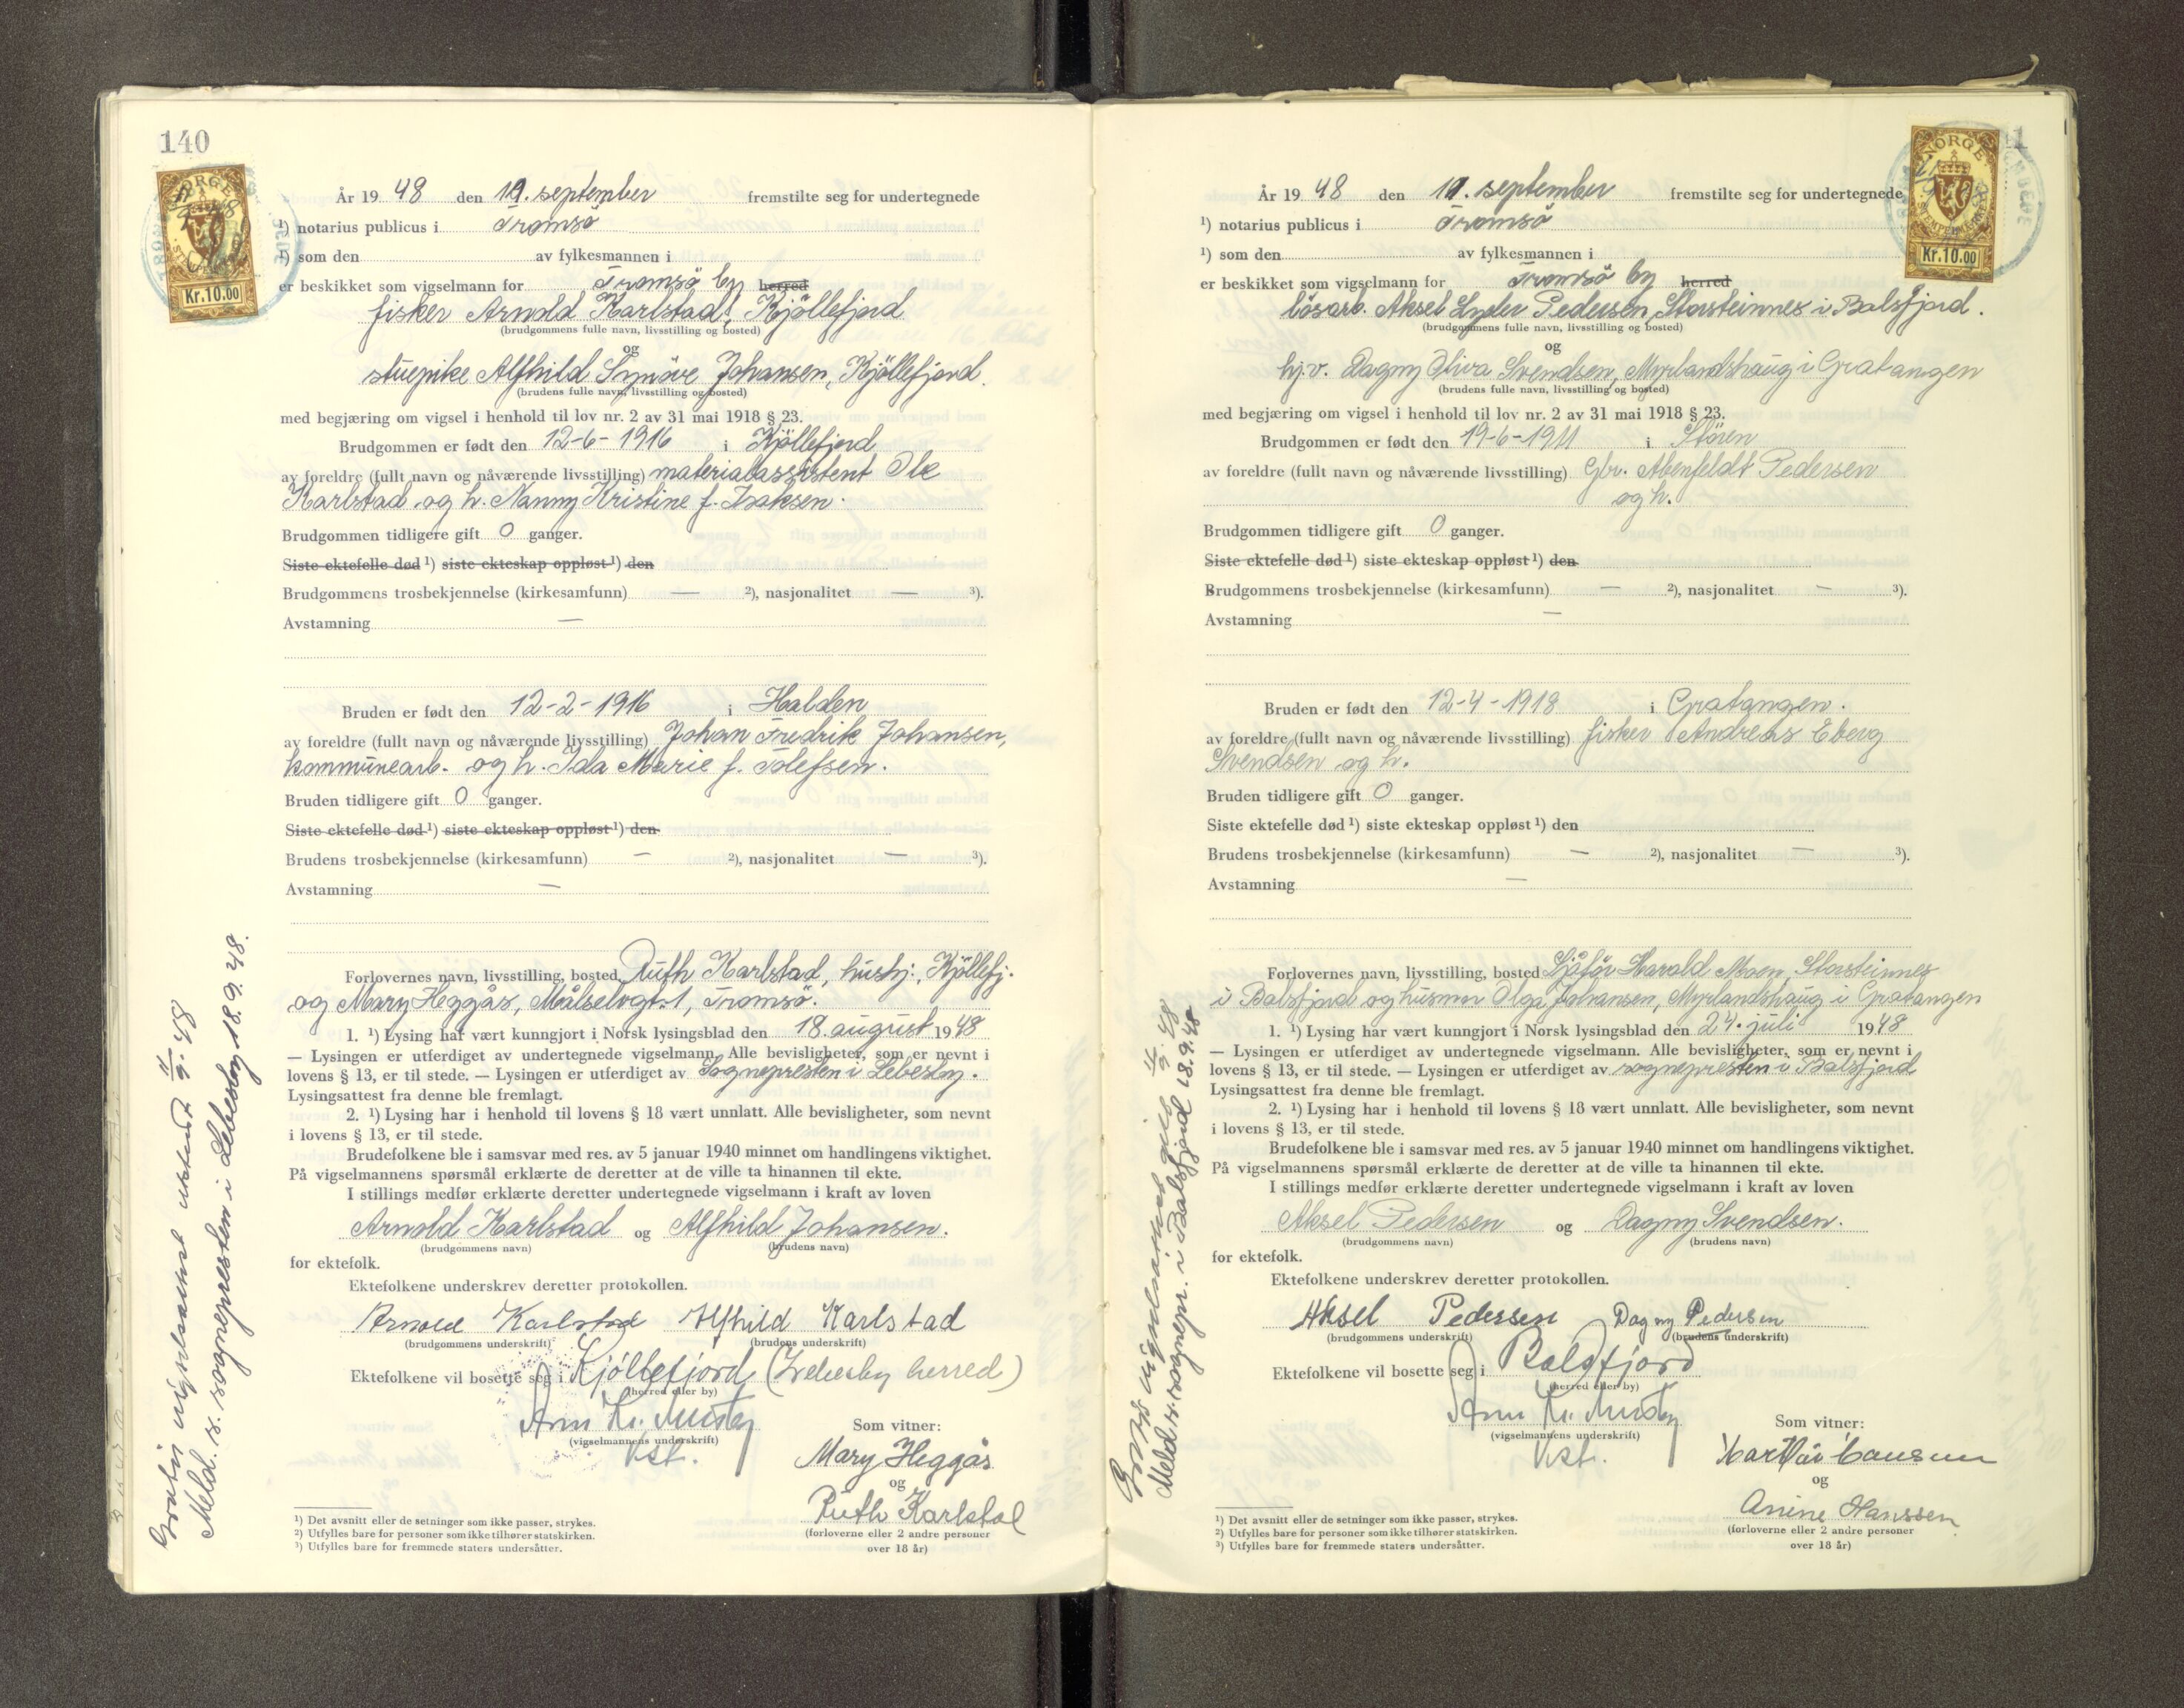 140
NORGE
Kr.10.00
År 19 48 den 11. september fremstilte seg for undertegnede
¹) notarius publicus i Tromsö
¹) som den av fylkesmannen i
er beskikket som vigselmann for Tromsö by herred
fisker Arnold Karlstad, Kjöllefjord
(brudgommens fulle navn, livsstilling og bosted)
og
stuepike Alfhild Synöve Johansen, Kjöllefjord.
(brudens fulle navn, livsstilling og bosted)
med begjæring om vigsel i henhold til lov nr. 2 av 31 mai 1918 § 23.
Brudgommen er født den 12-6-1916 i Kjöllefjord
av foreldre (fullt navn og nåværende livsstilling) materialassistent Ole
Karlstad og h. Nanny Kristine f. Isaksen.
Brudgommen tidligere gift 0 ganger.
Siste ektefelle død ¹) siste ekteskap oppløst ¹) den
Brudgommens trosbekjennelse (kirkesamfunn) — ²), nasjonalitet — ³).
Avstamning —
Bruden er født den 12-2-1916 i Halden
av foreldre (fullt navn og nåværende livsstilling) Johan Fredrik Johansen,
kommunearb. og h. Ida Marie f. Tolefsen.
Bruden tidligere gift 0 ganger.
Siste ektefelle død ¹) siste ekteskap oppløst ¹) den
Brudens trosbekjennelse (kirkesamfunn) — ²), nasjonalitet — ³).
Avstamning —
Forlovernes navn, livsstilling, bosted Ruth Karlstad, hushj., Kjöllefj.
og Mary Heggås, Målselvgt. 1, Tromsö.
1. ¹) Lysing har vært kunngjort i Norsk lysingsblad den 18. august 1948
— Lysingen er utferdiget av undertegnede vigselmann. Alle bevisligheter, som er nevnt i
lovens § 13, er til stede. — Lysingen er utferdiget av Sognepresten i Lebesby.
Lysingsattest fra denne ble fremlagt.
2. ¹) Lysing har i henhold til lovens § 18 vært unnlatt. Alle bevisligheter, som nevnt
i lovens § 13, er til stede.
Brudefolkene ble i samsvar med res. av 5 januar 1940 minnet om handlingens viktighet.
På vigselmannens spørsmål erklærte de deretter at de ville ta hinannen til ekte.
I stillings medfør erklærte deretter undertegnede vigselmann i kraft av loven
Arnold Karlstad og Alfhild Johansen.
(brudgommens navn) (brudens navn)
for ektefolk.
Ektefolkene underskrev deretter protokollen.
Arnold Karlstad Alfhild Karlstad
(brudgommens underskrift) (brudens underskrift)
Ektefolkene vil bosette seg i Kjöllefjord (Lebesby herred)
(herred eller by)
(vigselmannens underskrift)
Som vitner:
Mary Heggås
og
Ruth Karlstad
(forloverne eller 2 andre personer
over 18 år)
¹) Det avsnitt eller de setninger som ikke passer, strykes.
²) Utfylles bare for personer som ikke tilhører statskirken.
³) Utfylles bare for fremmede staters undersåtter.
vigselsattest utstedt 11/9.48
Meld. s. sognepresten i Lebesby 18.9.48.
NORGE
Kr.10.00
År 19 48 den 11. september fremstilte seg for undertegnede
¹) notarius publicus i Tromsö
¹) som den av fylkesmannen i
er beskikket som vigselmann for Tromsö by herred
lösarb. Aksel Lyder Pedersen, Storsteinnes i Balsfjord.
(brudgommens fulle navn, livsstilling og bosted)
og
hj.v. Dagny Oliva Svendsen, Myrlandshaug i Gratangen
(brudens fulle navn, livsstilling og bosted)
med begjæring om vigsel i henhold til lov nr. 2 av 31 mai 1918 § 23.
Brudgommen er født den 19-6-1911 i Stören
av foreldre (fullt navn og nåværende livsstilling) Gbr. Abenfeldt Pedersen
og h.
Brudgommen tidligere gift 0 ganger.
Siste ektefelle død ¹) siste ekteskap oppløst ¹) den
Brudgommens trosbekjennelse (kirkesamfunn) — ²), nasjonalitet — ³).
Avstamning —
Bruden er født den 12-4-1918 i Gratangen.
av foreldre (fullt navn og nåværende livsstilling) fisker Andreas Eberg
Svendsen og h.
Bruden tidligere gift 0 ganger.
Siste ektefelle død ¹) siste ekteskap oppløst ¹) den
Brudens trosbekjennelse (kirkesamfunn) — ²), nasjonalitet — ³).
Avstamning —
Forlovernes navn, livsstilling, bosted Sjåför Harald Moen, Storsteinnes
i Balsfjord og husmor Olga Johansen, Myrlandshaug i Gratangen
1. ¹) Lysing har vært kunngjort i Norsk lysingsblad den 24. juli 1948
— Lysingen er utferdiget av undertegnede vigselmann. Alle bevisligheter, som er nevnt i
lovens § 13, er til stede. — Lysingen er utferdiget av sognepresten i Balsfjord
Lysingsattest fra denne ble fremlagt.
2. ¹) Lysing har i henhold til lovens § 18 vært unnlatt. Alle bevisligheter, som nevnt
i lovens § 13, er til stede.
Brudefolkene ble i samsvar med res. av 5 januar 1940 minnet om handlingens viktighet.
På vigselmannens spørsmål erklærte de deretter at de ville ta hinannen til ekte.
I stillings medfør erklærte deretter undertegnede vigselmann i kraft av loven
Aksel Pedersen og Dagny Svendsen.
(brudgommens navn) (brudens navn)
for ektefolk.
Ektefolkene underskrev deretter protokollen.
Aksel Pedersen Dagny Pedersen
(brudgommens underskrift) (brudens underskrift)
Ektefolkene vil bosette seg i Balsfjord
(herred eller by)
(vigselmannens underskrift)
Som vitner:
og
Anine Hanssen
(forloverne eller 2 andre personer
over 18 år)
¹) Det avsnitt eller de setninger som ikke passer, strykes.
²) Utfylles bare for personer som ikke tilhører statskirken.
³) Utfylles bare for fremmede staters undersåtter.
vigselsattest 11/9.48
Meld. s. sognepr. i Balsfjord 18.9.48